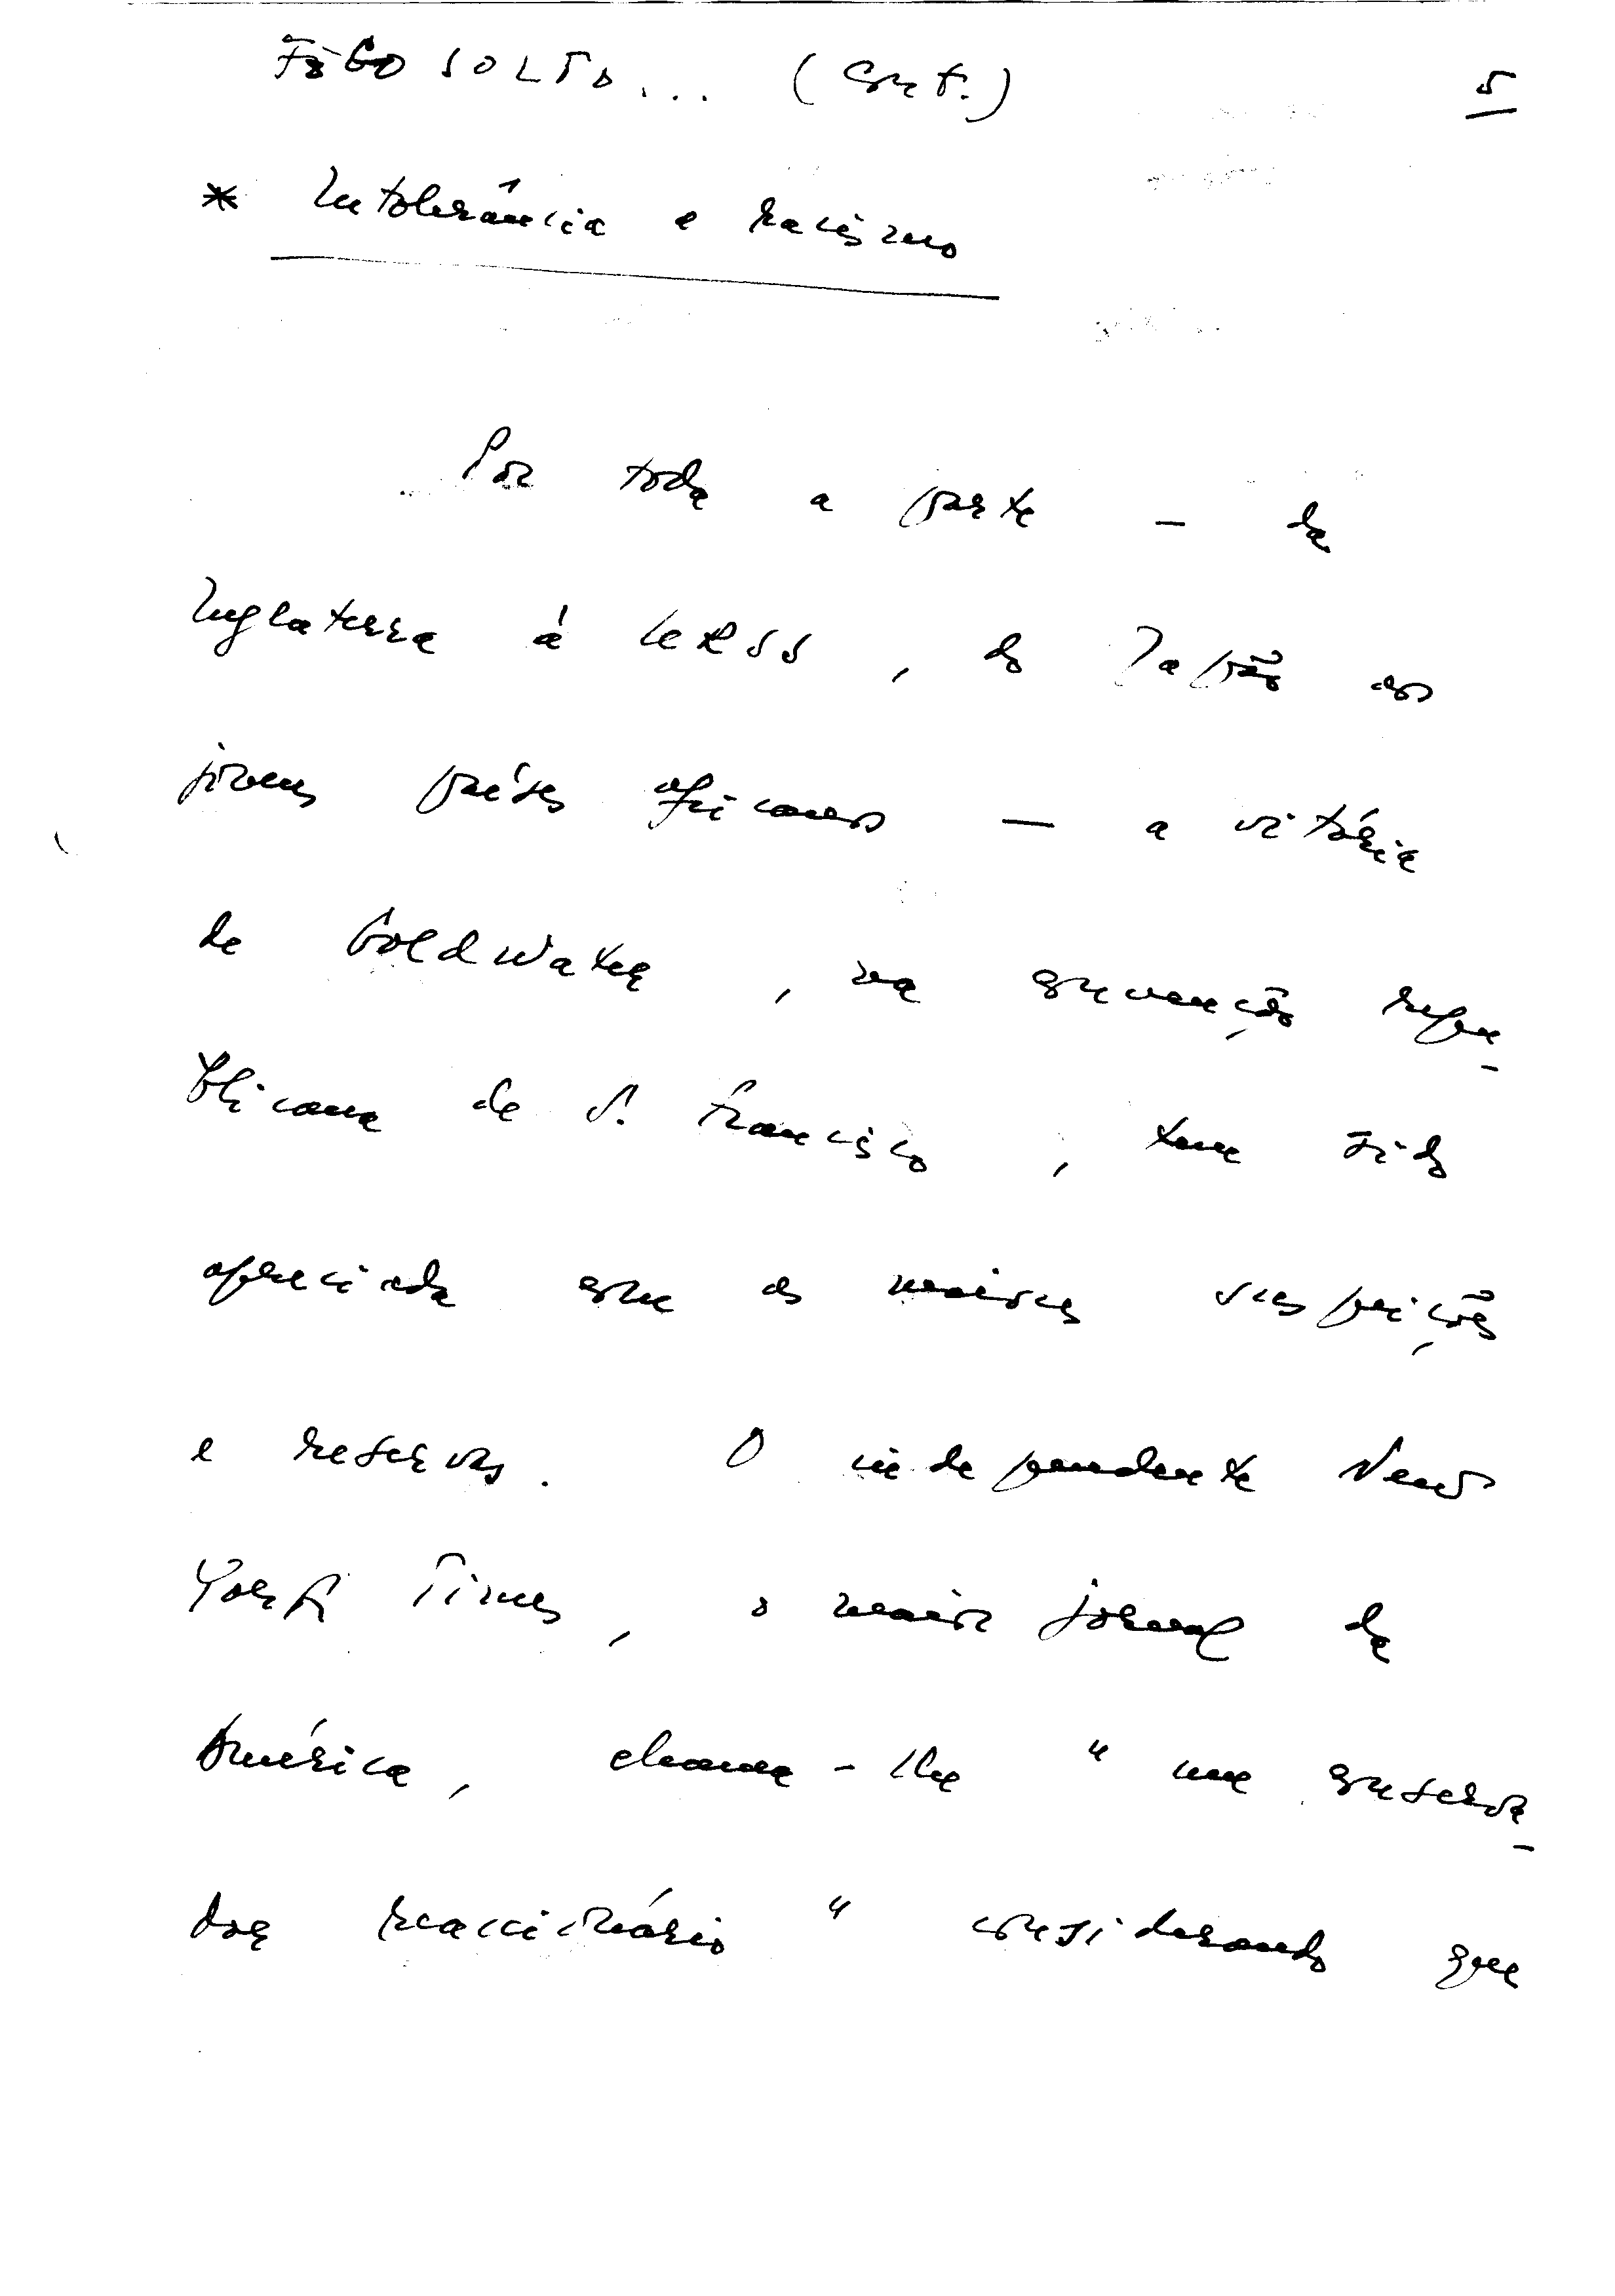 FÔGO SOLTO... (Cont.) 5
* Intolerância e racismo
Por toda a parte — da
Inglaterra à URSS, do Japão aos
jovens países africanos — a vitória
de Goldwater, na convenção repu-
blicana de S. Francisco, tem sido
apreciada com as maiores suspeições
e reservas. O independente New
York Times, o maior jornal da
América, chama-lhe "um conserva-
dor reaccionário" considerando que